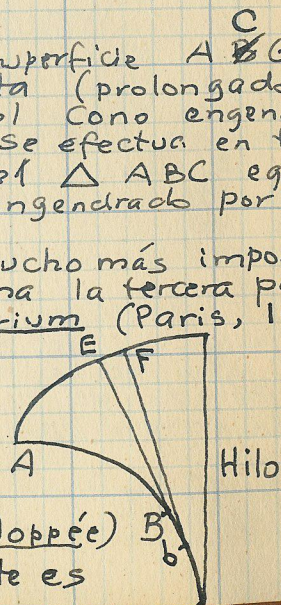 C
uperficie A B C
ta (prolongado
el cono engen
se efectua en
el △ ABC eq
ngendrado por
ucho más impo
na la tercera p
rium (Paris, 1
E F
A
Hilo
loppée) B
b
te es